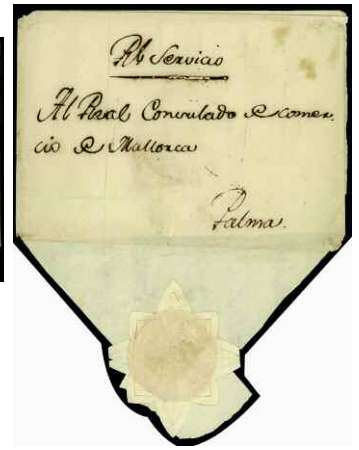 Rl Servicio
Al Real Consulado de comer.
cio de Mallorca
Palma.